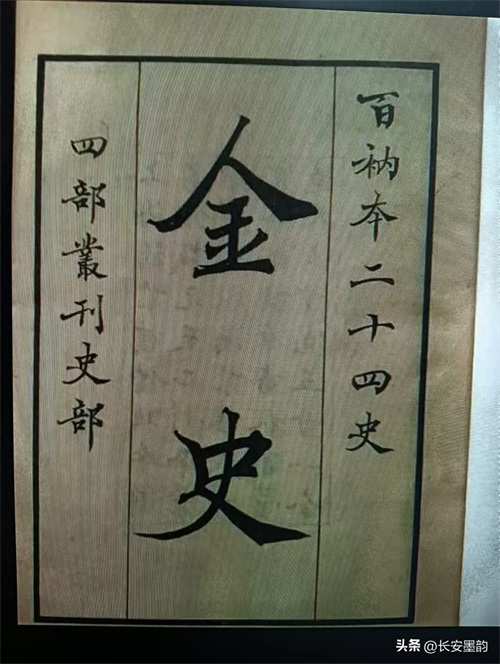 百衲本二十四史
金史
四部叢刊史部
头条 @长安墨韵